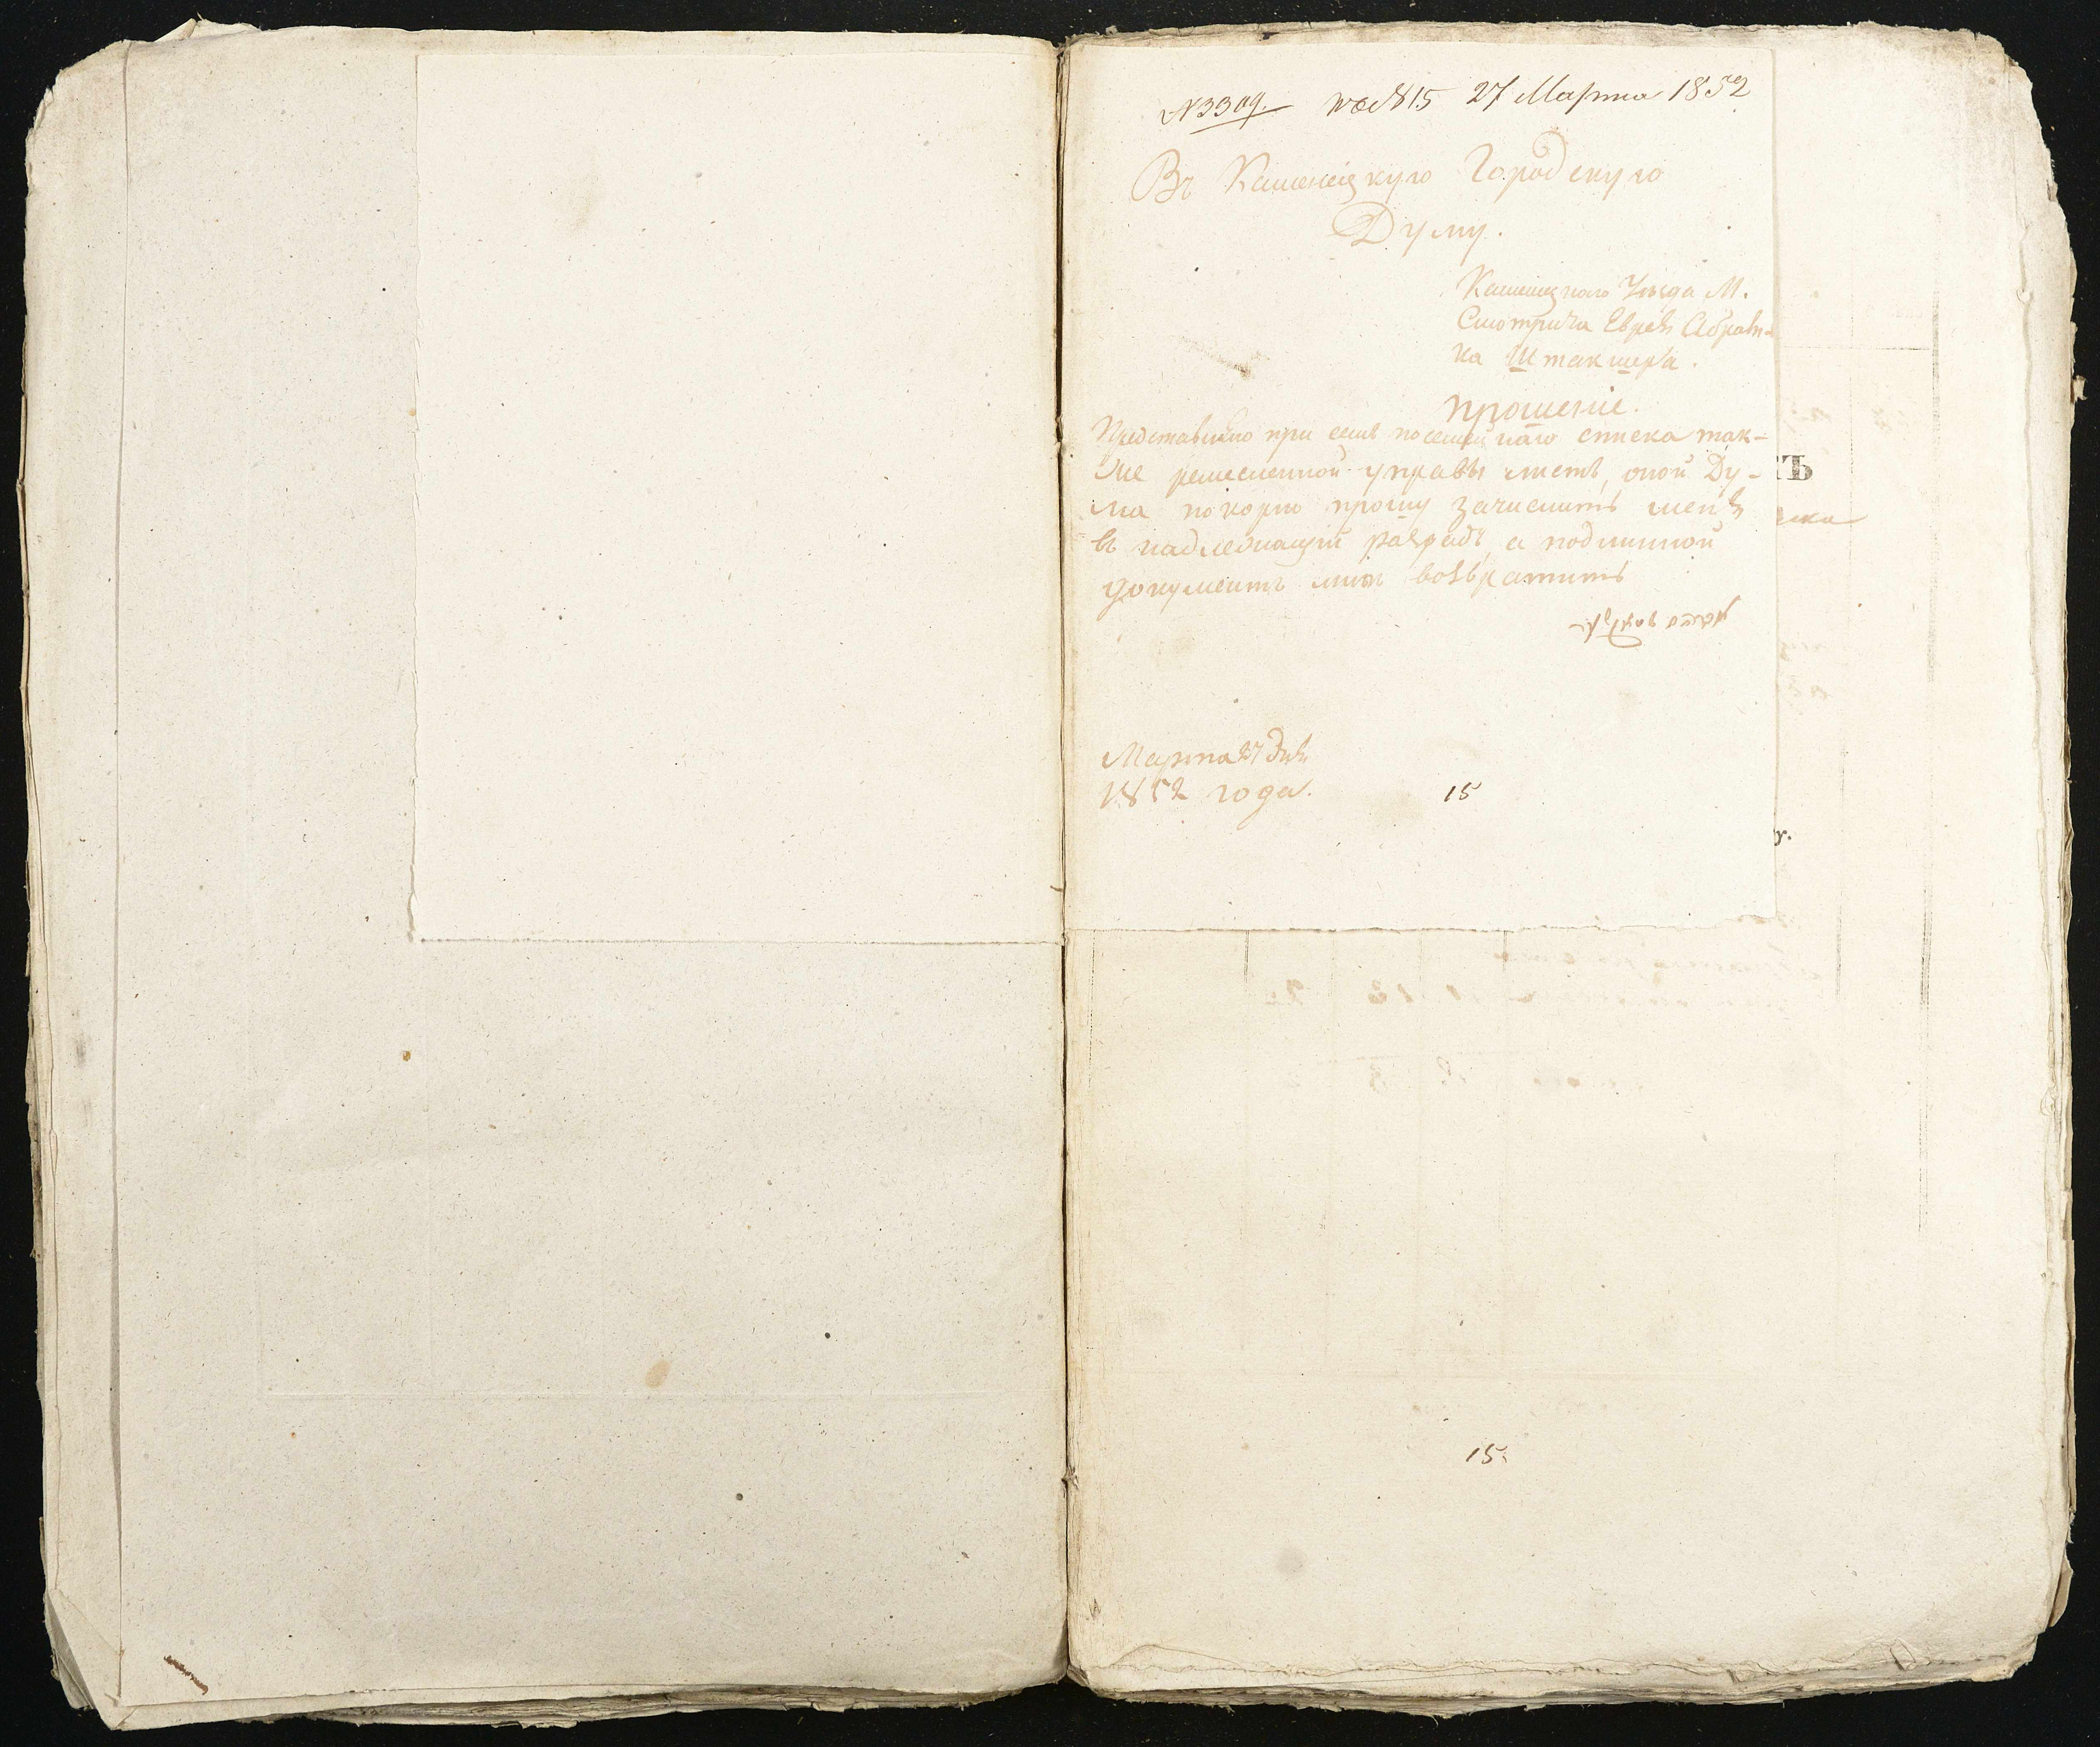 N 3309. 27 Марта 1852
Въ Каменецкую Городскую
Думу.
Каменецкаго Уѣзда М.
Смотрича Еврея Абрам-
ка Штакмера.
Прошеніе.
Представляю при семъ посемейнаго списка так-
же ремесленной управы листъ, оной Ду-
ма покорно прошу зачислить меня
въ надлежащій разрядъ, а подлинной
документъ мнѣ возвратить
Марта 27 дня
1852 года.
15
15